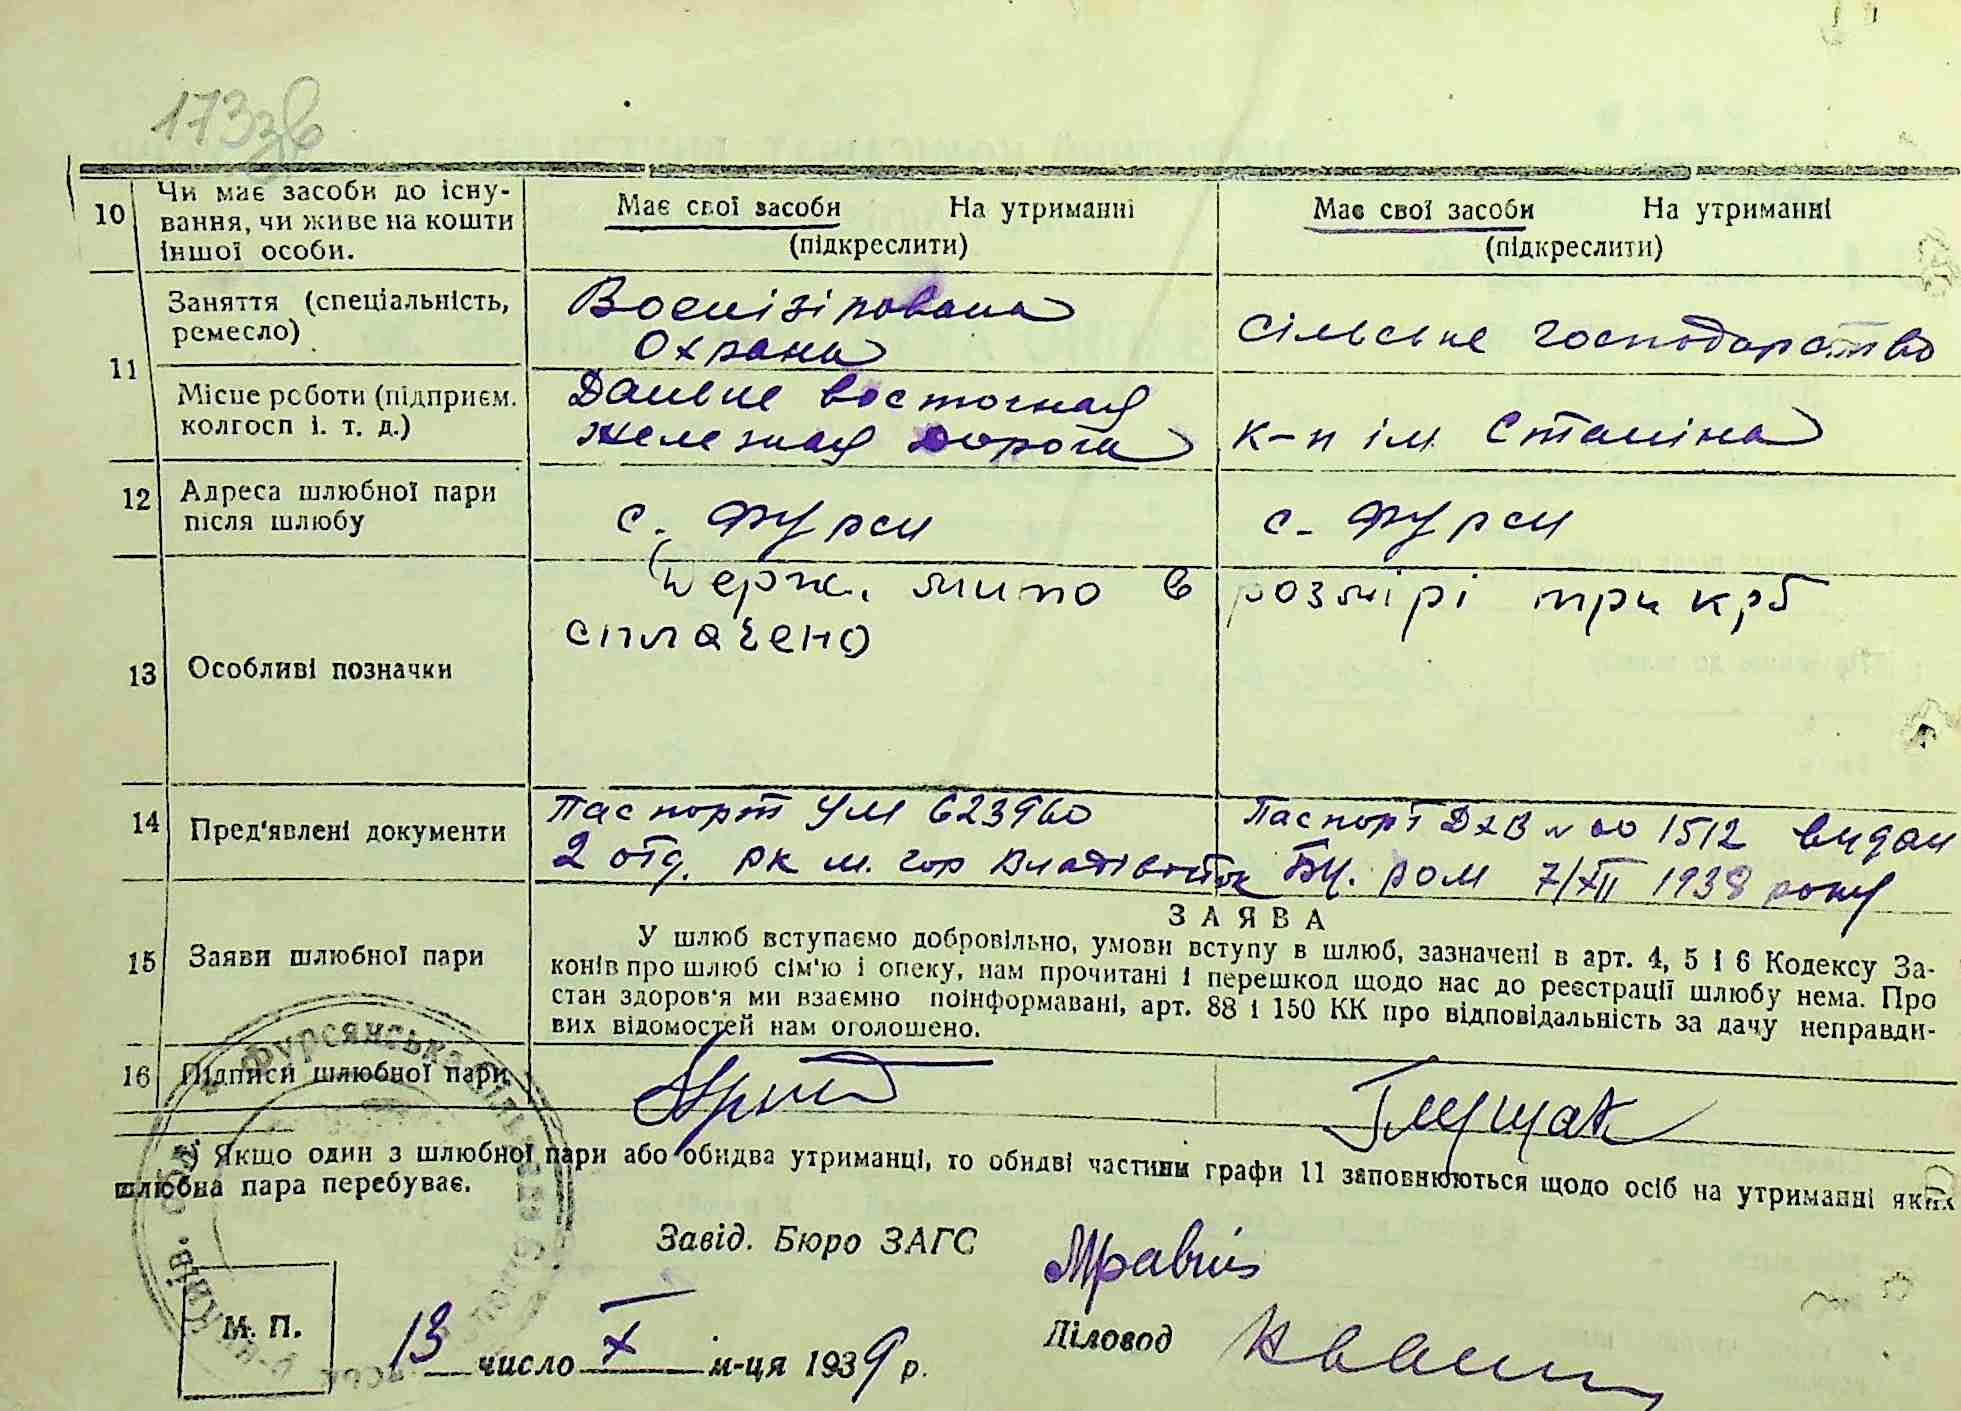 173зв
10 Чи має засоби до існу-
вання, чи живе на кошти
іншої особи.
Має свої засоби На утриманні
(підкреслити)
Має свої засоби На утриманні
(підкреслити)
11 Заняття (спеціальність,
ремесло)
Воєнізірована
Охрана
Сільське господарство
Місце роботи (підприєм.
колгосп і. т. д.)
Дальне восточная
железная дорога
к-п ім Сталіна
12 Адреса шлюбної пари
після шлюбу
с. Фурси
с. Фурси
13 Особливі позначки
Держ. мито в розмірі три крб
сплачено
14 Пред'явлені документи
Паспорт УМ 623960
2 отд. рк м. гор Владівосток
Паспорт ДХВ № 00 1512 видан
БЦ. ром 7/XII 1938 року
15 Заяви шлюбної пари
ЗАЯВА
У шлюб вступаємо добровільно, умови вступу в шлюб, зазначені в арт. 4, 5 і 6 Кодексу За-
конів про шлюб сім'ю і опеку, нам прочитані і перешкод щодо нас до реєстрації шлюбу нема. Про
стан здоров'я ми взаємно поінформавані, арт. 88 і 150 КК про відповідальність за дачу неправди-
вих відомостей нам оголошено.
16 Підписи шлюбної пари
Глущак
) Якщо один з шлюбної пари або обидва утриманці, то обидві частини графи 11 заповнюються щодо осіб на утриманні яких
шлюбна пара перебуває.
Завід. Бюро ЗАГС
М. П.
13 число X м-ця 1939 р.
Діловод
Фурсянська
Київ. обл.